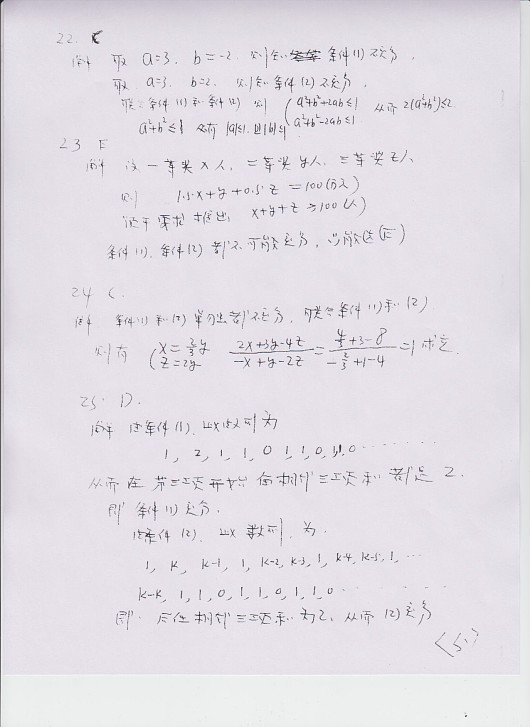 22. C
解 取 a=3, b=-2. 则知 条件(1)不充分,
取 a=3, b=2. 则知条件(2)不充分,
联立条件(1)和条件(2) 则 { a²+b²+2ab≤1 从而 2(a²+b²)≤2
a²+b²-2ab≤1
a²+b²≤1 必有 |a|≤1. 且|b|≤1
23 E
解 设 一等奖 x人, 二等奖 y人, 三等奖 z人
则 1.5x+y+0.5z=100(万元)
题干要求推出 x+y+z≥100(人)
条件(1), 条件(2)都不可能充分, 只能选(E)
24 C.
解 条件(1)和(2)单独都不充分, 联合条件(1)和(2)
则有 { x=2/3y (2x+3y-4z)/(-x+y-2z) = (4/3+3-8)/(-2/3+1-4) =1 成立
z=2y
25. D.
解 由条件(1), 此数列为
1, 2, 1, 1, 0 1, 1, 0, 1, 1, 0 ······
从而在第三项开始 每相邻三项和都是 2.
即 条件(1)充分.
由条件(2), 此数列, 为
1, k, k-1, 1, k-2, k-3, 1, k-4, k-5, 1, ···
k-k, 1, 1, 0, 1, 1, 0, 1, 1, 0 ······
即 任何相邻三项和为2, 从而(2)充分